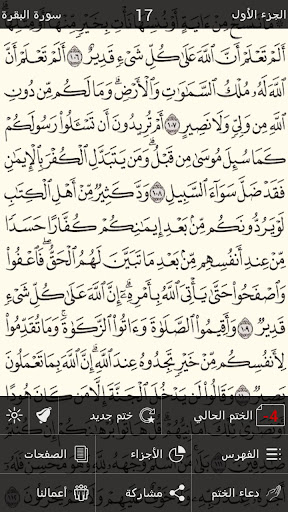 الجزء الأول 17 سورة البقرة
أَلَمْ تَعْلَمْ أَنَّ ٱللَّهَ عَلَىٰ كُلِّ شَىْءٍ قَدِيرٌ ١٠٦ أَلَمْ تَعْلَمْ أَنَّ
ٱللَّهَ لَهُۥ مُلْكُ ٱلسَّمَـٰوَٰتِ وَٱلْأَرْضِ ۗ وَمَا لَكُم مِّن دُونِ
ٱللَّهِ مِن وَلِىٍّ وَلَا نَصِيرٍ ١٠٧ أَمْ تُرِيدُونَ أَن تَسْـَٔلُوا۟ رَسُولَكُمْ
كَمَا سُئِلَ مُوسَىٰ مِن قَبْلُ ۗ وَمَن يَتَبَدَّلِ ٱلْكُفْرَ بِٱلْإِيمَـٰنِ
فَقَدْ ضَلَّ سَوَآءَ ٱلسَّبِيلِ ١٠٨ وَدَّ كَثِيرٌ مِّنْ أَهْلِ ٱلْكِتَـٰبِ
لَوْ يَرُدُّونَكُم مِّنۢ بَعْدِ إِيمَـٰنِكُمْ كُفَّارًا حَسَدًا
مِّنْ عِندِ أَنفُسِهِم مِّنۢ بَعْدِ مَا تَبَيَّنَ لَهُمُ ٱلْحَقُّ ۖ فَٱعْفُوا۟
وَٱصْفَحُوا۟ حَتَّىٰ يَأْتِىَ ٱللَّهُ بِأَمْرِهِۦٓ ۗ إِنَّ ٱللَّهَ عَلَىٰ كُلِّ شَىْءٍ
قَدِيرٌ ١٠٩ وَأَقِيمُوا۟ ٱلصَّلَوٰةَ وَءَاتُوا۟ ٱلزَّكَوٰةَ ۚ وَمَا تُقَدِّمُوا۟
لِأَنفُسِكُم مِّنْ خَيْرٍ تَجِدُوهُ عِندَ ٱللَّهِ ۗ إِنَّ ٱللَّهَ بِمَا تَعْمَلُونَ
-4 الختم الحالي ختم جديد
الفهرس الأجزاء الصفحات
دعاء الختم مشاركة أعمالنا